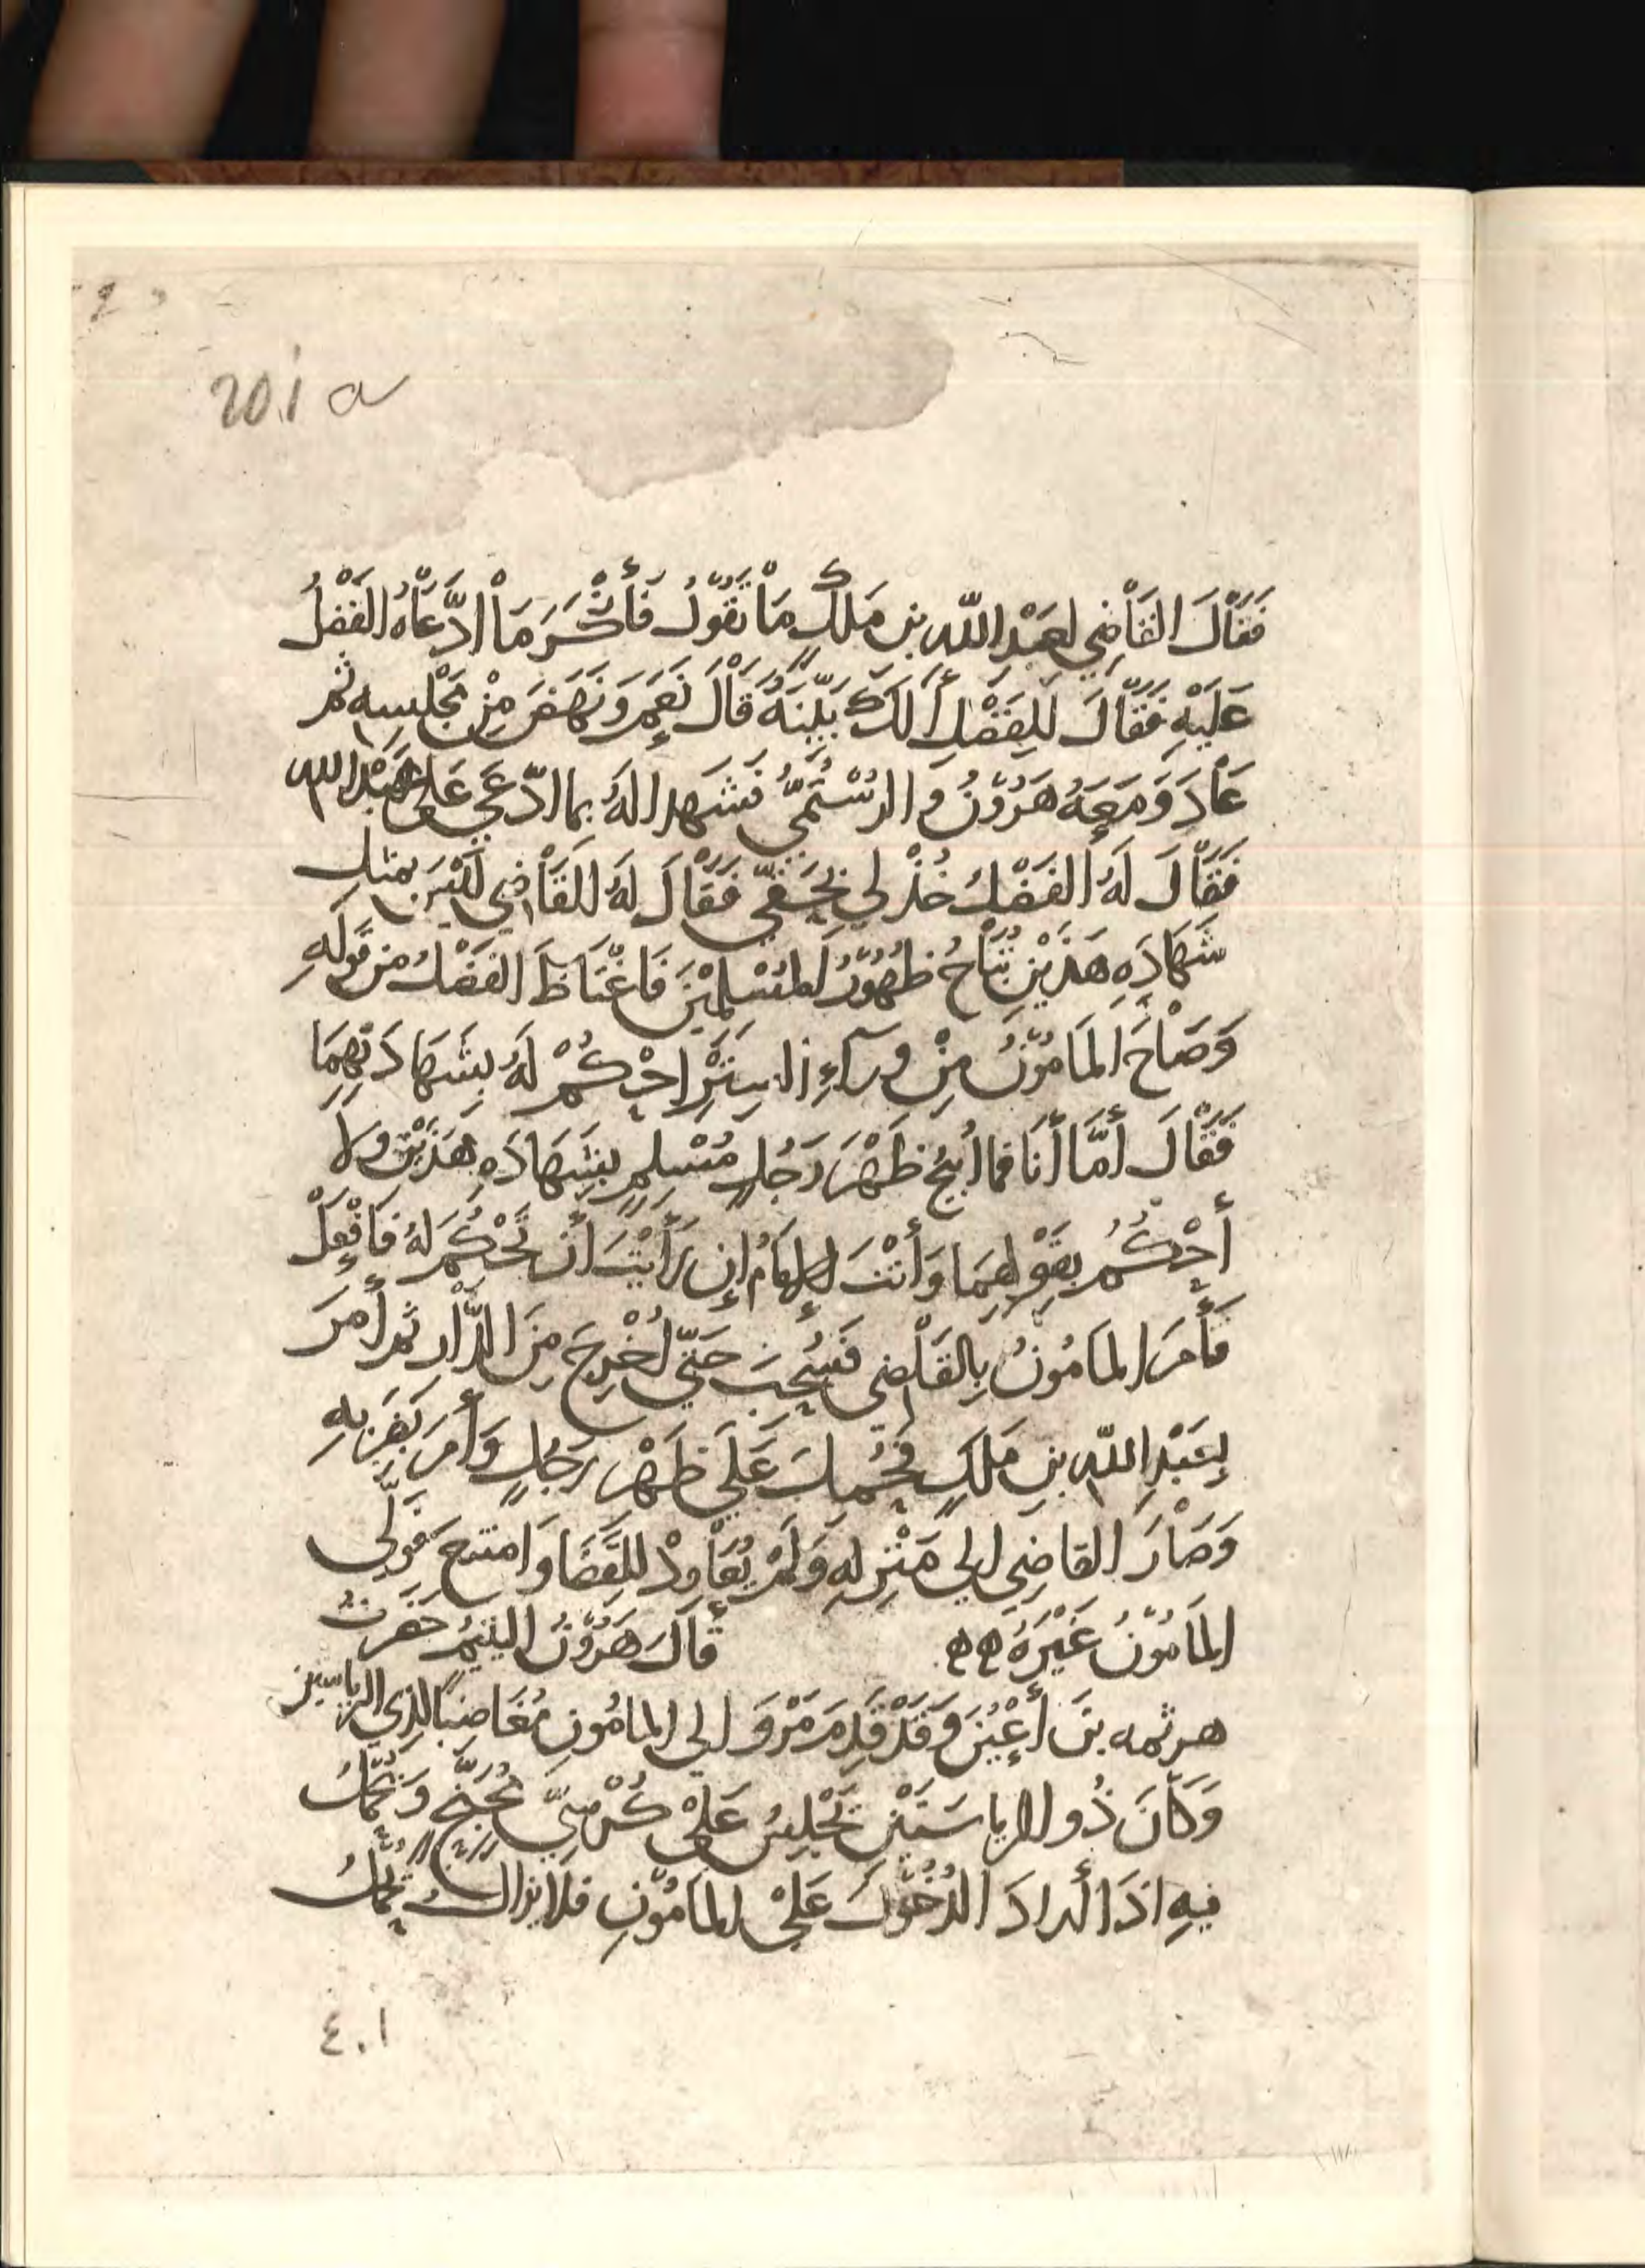 201 a
فَقَاْلَ القَاْضِي لعَبْدِ اللّه بنِ مَلِكٍ مَاْ تَقُوْلُ فَأَنْكَرَ مَاْ ادَّعَاْهُ الفَضْلُ
عَلَيْهِ فَقَاْلَ لِلفَضْلِ أَلَكَ بَيِّنَةٌ قَاْلَ نَعَمْ وَنَهَضَ مِنْ مَجْلِسِهِ ثم
عَاْدَ وَمَعَهُ هَرُوْنُ وَالرُسْتُمِيُّ فَشَهِدا لهُ بما ادّعَى عَلَى عَبْدِ الله
فَقَاْلَ لَهُ الفَضْلُ خُذْ لي بِحَقّي فَقَاْلَ لَهُ القَاْضِي لَيْسَ بمثل
شَهَادَهِ هَذَيْنِ تُبَاْحُ ظُهُوْرُ المُسْلِمِيْنَ فَاغْتَاظَ الفَضْلُ من قَوْلِهِ
وَصَاْحَ المَامُوْنُ مِنْ وَرَآءِ السِتْرِ احْكُمْ لَهُ بِشَهَادَتِهِمَا
فَقَاْلَ أَمَّا أَنَا فما أُبِيحُ ظَهْرَ رَجُلٍ مُسْلِمٍ بِشَهَادَهِ هَذَيْنِ ولا
أَحْكُم بِقَوْلِهِمَا وَأَنْتَ الإِمَامُ إِن رَأَيْتَ أَنْ تَحْكُمَ لَهُ فَافْعَلْ
فَأَمَرَ المَامُونُ بِالقَاْضِي فَسُحِبَ حَتّي أُخْرِجَ مِنَ الدَّاْرِ ثم أَمَرَ
بِعَبْدِ اللّه بنِ مَلِكٍ فَحُمِلَ عَلَى ظَهْرِ رَجُلٍ وَأَمَرَ بِضَرْبِهِ
وَصَاْرَ القاضِي الي مَنْزِلِهِ وَلَمْ يُعَاْوِدْ لِلقَضَا وَامتنع فَوَلَّى
المَامُوْنُ غَيْرَهُ ه ه قَاْلَ هَرُوْنُ اليَتِيْمُ حَضَرْتُ
هرثمه بنَ أَعْيُنَ وَقَدْ قَدِمَ مَرْوَ الي المامُونِ مُغَاضِبًا لِذِي الرياستين
وَكَاْنَ ذُو الرياسَتَيْنِ يَجْلِسُ عَلَىْ كُرْسِيٍّ مُجَنَّحٍ وَيُحْمَلُ
فِيهِ اذَا أَرادَ الدُخُوْلَ عَلَىْ المَامُوْنِ فلا يزالُ يُحْمَلُ
٤٠١